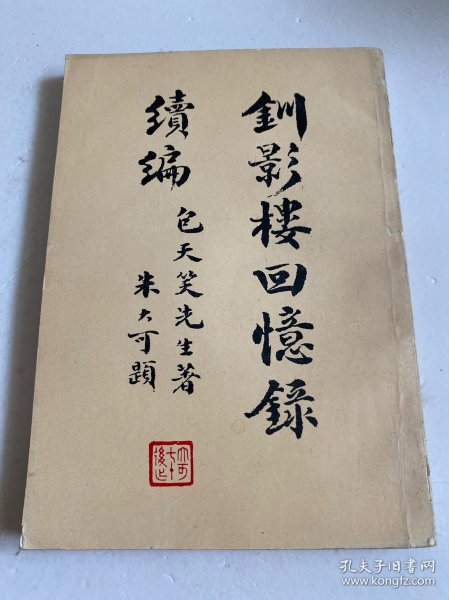 釧影楼回憶錄
續編
包天笑先生著
朱大可題
大可
七十
後作
孔夫子旧书网
www.kongfz.com